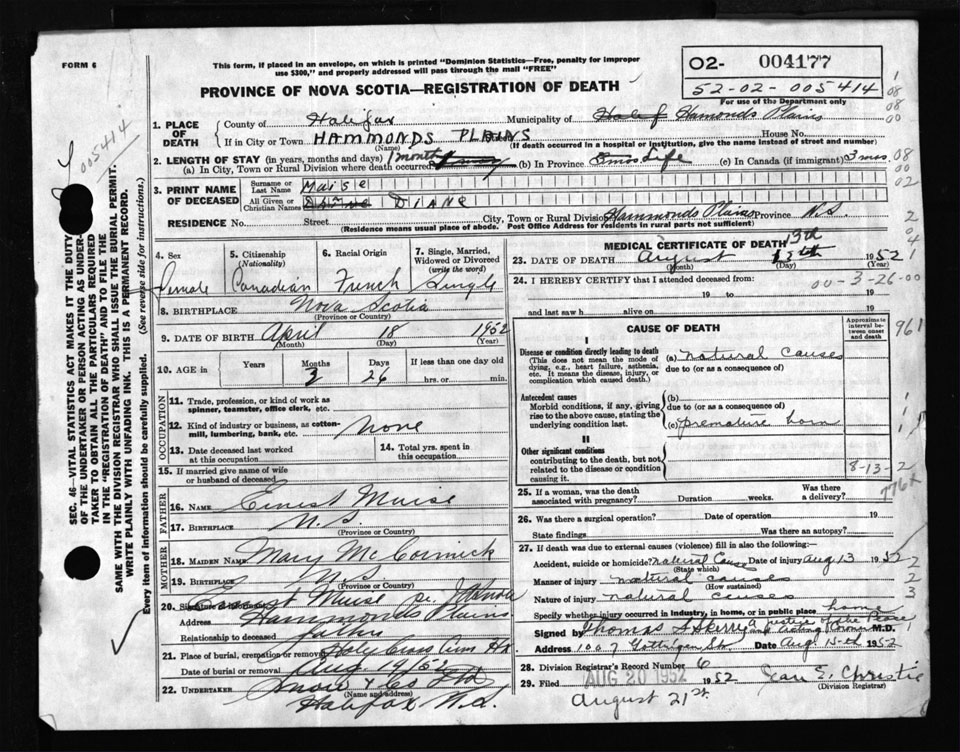 FORM 6
This form, if placed in an envelope, on which is printed "Dominion Statistics—Free, penalty for improper
use $300," and properly addressed will pass through the mail "FREE"
PROVINCE OF NOVA SCOTIA—REGISTRATION OF DEATH
02- 004177
52-02-005414
For use of the Department only
005414
SEC. 46—VITAL STATISTICS ACT MAKES IT THE DUTY
OF THE UNDERTAKER OR PERSON ACTING AS UNDER-
TAKER TO OBTAIN ALL THE PARTICULARS REQUIRED
IN THE "REGISTRATION OF DEATH" AND TO FILE THE
SAME WITH THE DIVISION REGISTRAR WHO SHALL ISSUE THE BURIAL PERMIT.
WRITE PLAINLY WITH UNFADING INK. THIS IS A PERMANENT RECORD.
Every item of information should be carefully supplied. (See reverse side for instructions.)
1. PLACE OF DEATH
County of Halifax Municipality of Halif Hamonds Plains
If in City or Town HAMMONDS PLAINS Street House No.
(Name) (If death occurred in a hospital or institution, give the name instead of street and number)
2. LENGTH OF STAY (in years, months and days) 1 month
(a) In City, Town or Rural Division where death occurred (b) In Province 3 mos Life (c) In Canada (if immigrant) 3 mos
3. PRINT NAME OF DECEASED
Surname or Last Name Muise
All Given or Christian Names DIANE
RESIDENCE No. Street City, Town or Rural Division Hammonds Plains Province N.S
(Residence means usual place of abode. Post Office Address for residents in rural parts not sufficient)
4. Sex Female
5. Citizenship (Nationality) Canadian
6. Racial Origin French
7. Single, Married, Widowed or Divorced (write the word) Single
8. BIRTHPLACE Nova Scotia
(Province or Country)
9. DATE OF BIRTH April 18 1952
(Month) (Day) (Year)
10. AGE in Years Months 3 Days 26 If less than one day old
hrs. or min.
OCCUPATION
11. Trade, profession, or kind of work as
spinner, teamster, office clerk, etc.
12. Kind of industry or business, as cotton-
mill, lumbering, bank, etc. None
13. Date deceased last worked
at this occupation
14. Total yrs. spent in
this occupation
15. If married give name of wife
or husband of deceased
FATHER
16. NAME Ernest Muise
17. BIRTHPLACE N.S.
(Province or Country)
MOTHER
18. MAIDEN NAME Mary McCormick
19. BIRTHPLACE N.S
(Province or Country)
20. Signature of informant Ernest Muise
Address Hammonds Plains
Relationship to deceased father
21. Place of burial, cremation or removal Holy Cross
Date of burial or removal Aug. 19/52
22. UNDERTAKER Snow & Co Ltd
(Name and address)
Halifax N.S.
MEDICAL CERTIFICATE OF DEATH
23. DATE OF DEATH August 13th 1952
(Month) (Day) (Year)
24. I HEREBY CERTIFY that I attended deceased from:
00-3-26-00
19 to 19
and last saw h alive on 19
CAUSE OF DEATH
Approximate interval between onset and death
961
I
Disease or condition directly leading to death
(This does not mean the mode of
dying, e.g., heart failure, asthenia,
etc. It means the disease, injury, or
complication which caused death.)
(a) natural causes
due to (or as a consequence of)
Antecedent causes
Morbid conditions, if any, giving
rise to the above cause, stating the
underlying condition last.
(b)
due to (or as a consequence of)
(c) premature born
II
Other significant conditions
contributing to the death, but not
related to the disease or condition
causing it.
8-13-2
25. If a woman, was the death
associated with pregnancy? Duration weeks. Was there
a delivery?
26. Was there a surgical operation? Date of operation 19
State findings Was there an autopsy?
27. If death was due to external causes (violence) fill in also the following:—
Accident, suicide or homicide? natural Causes Date of injury Aug 13 1952
(State which)
Manner of injury natural causes
(How sustained)
Nature of injury natural causes
Specify whether injury occurred in industry, in home, or in public place home
Signed by Thomas a justice of the Peace
and Acting Coroner M.D.
Address 100 Gottingen St. Date Aug 15th 1952
28. Division Registrar's Record Number 6
29. Filed AUG 20 1952 1952 Jean E. Christie
(Division Registrar)
August 21st.